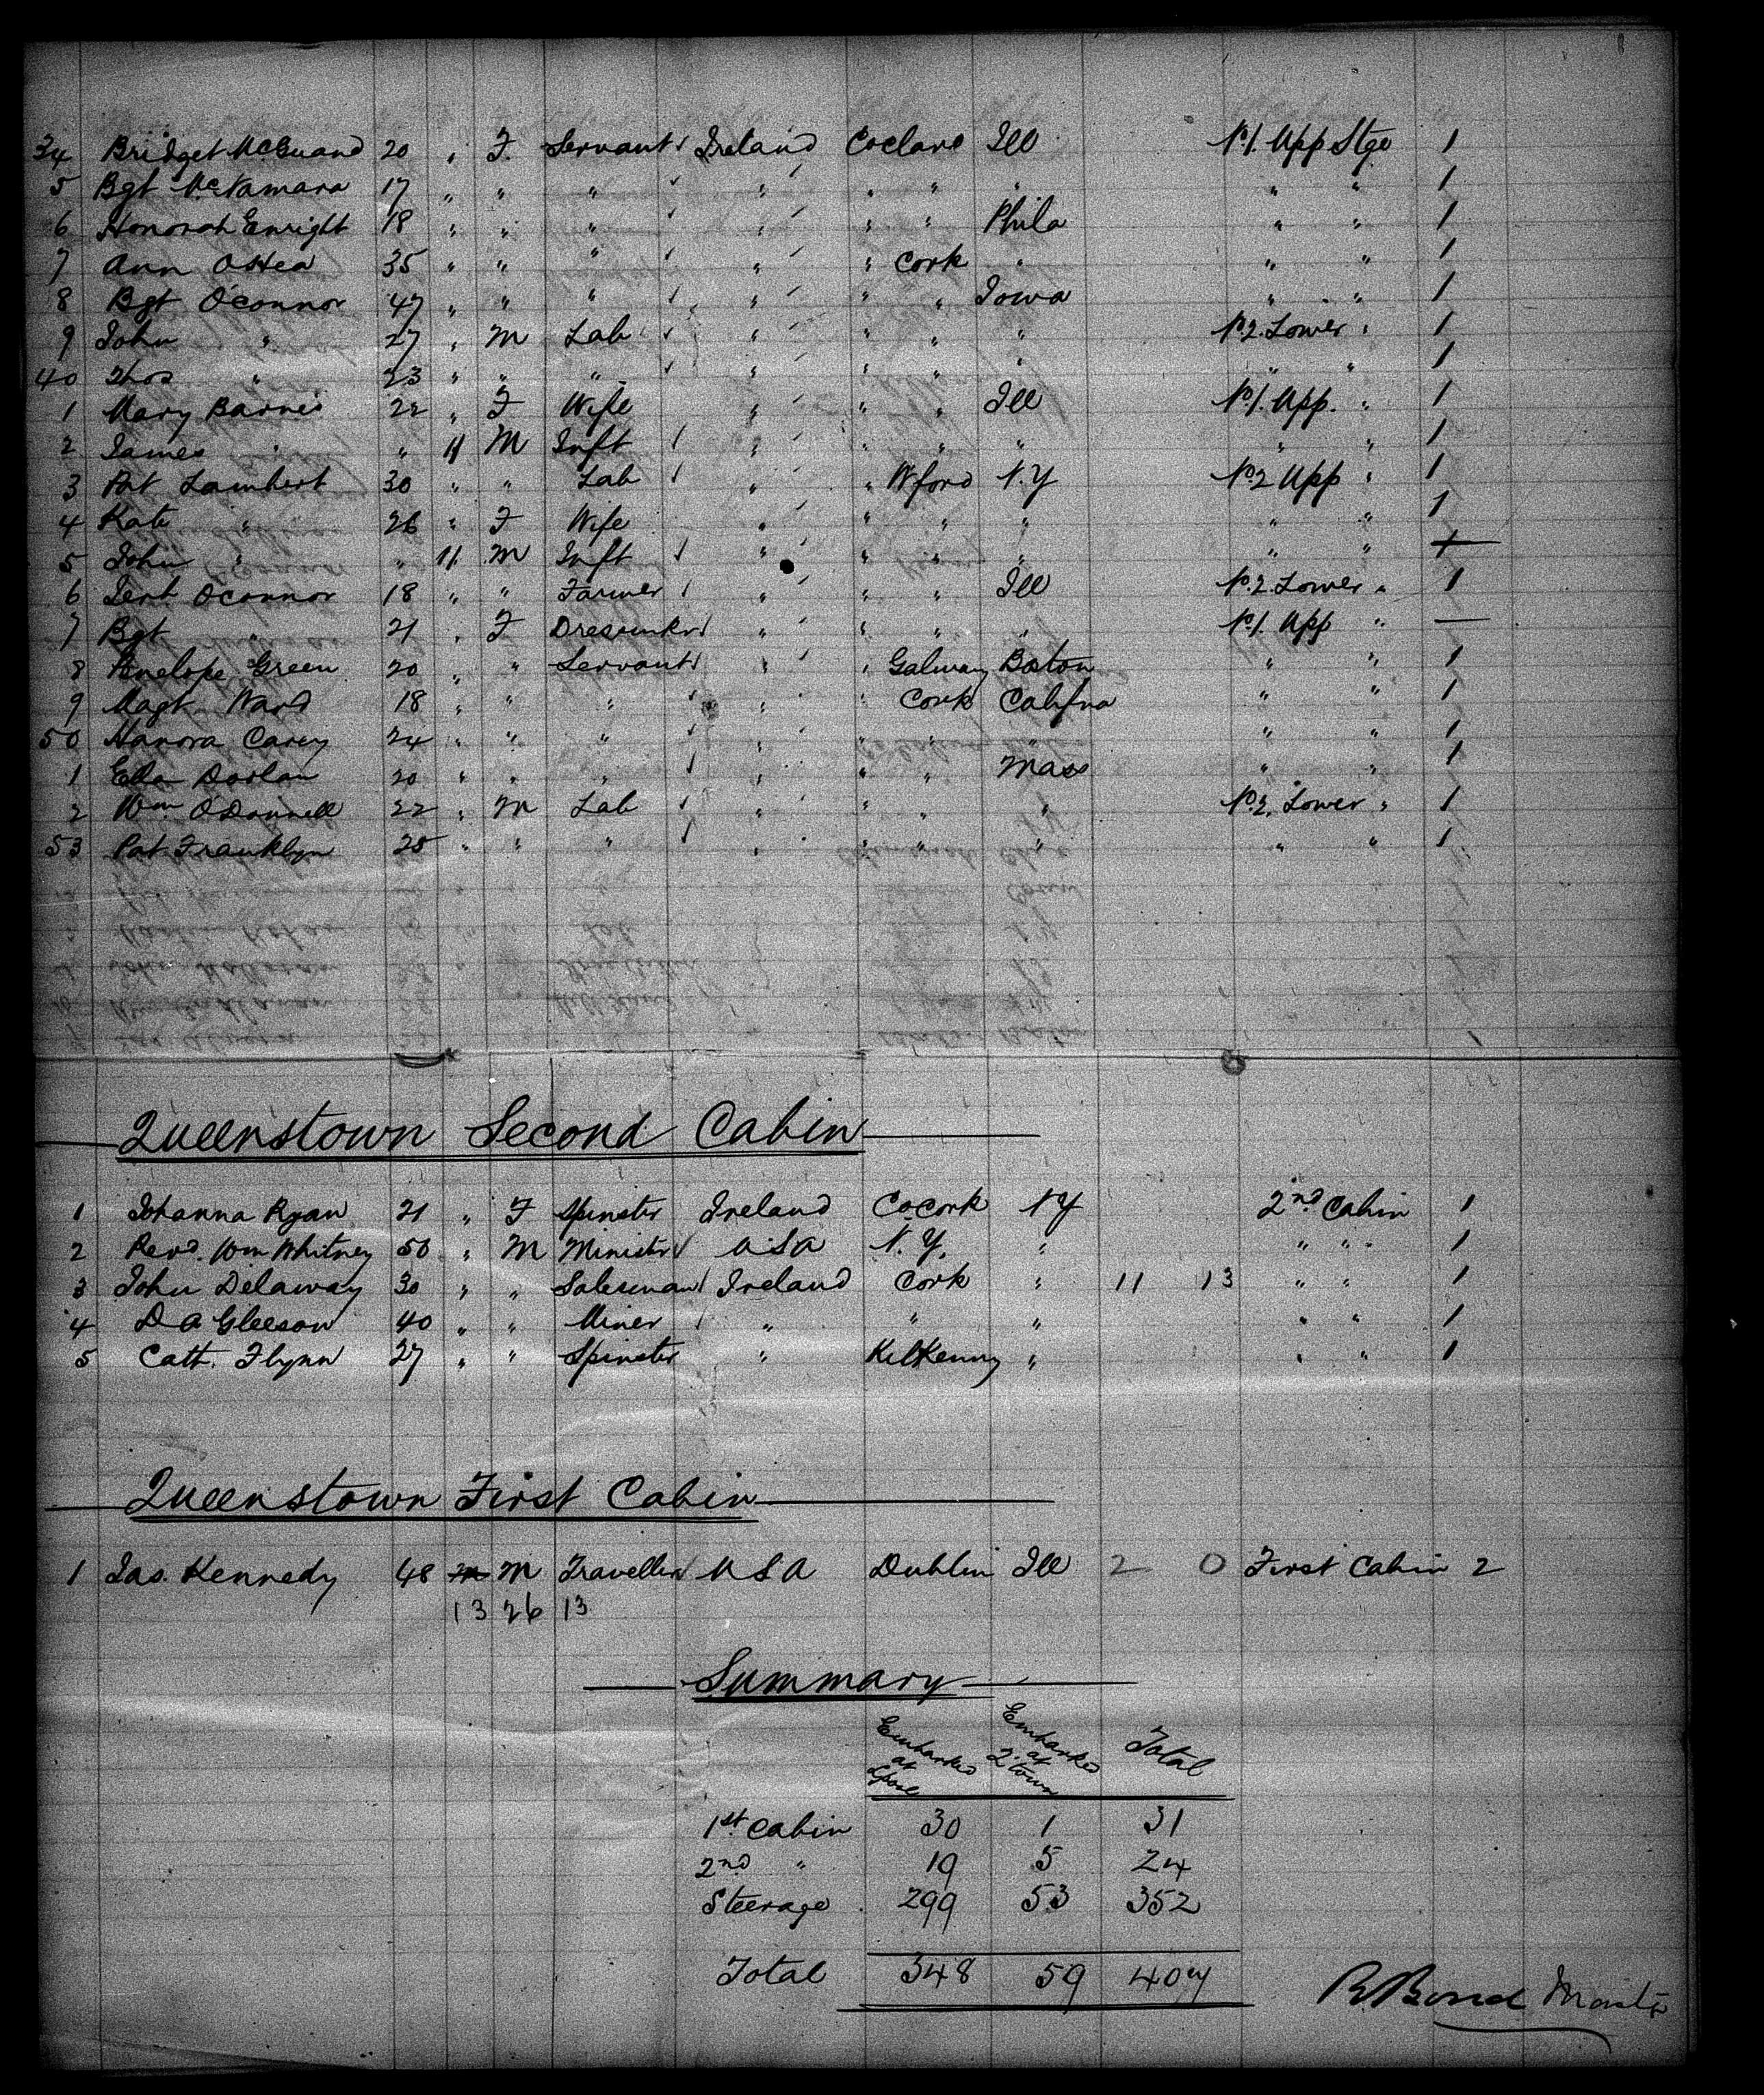 34 Bridget McGuane 20 " F. Servant Ireland Coclare Ill No.1. Upp Stge 1
5 Bgt McNamara 17 " " " " " " " " " 1
6 Honorah Enright 18 " " " " " " Phila " " 1
7 Ann OShea 35 " " " " " Cork " " " 1
8 Bgt O'Connor 47 " " " " " " Iowa " " 1
9 John " 27 " M Lab " " " " No.2. Lower " 1
40 Thos " 23 " " " " " " " " " 1
1 Mary Barnes 22 " F Wife " " " Ill No.1. Upp. " 1
2 James " " 11 M Inft " " " " " " 1
3 Pat Lambert 30 " " Lab " " Wford N.Y No.2 Upp " 1
4 Kate " 26 " F Wife " " " " " " 1
5 John " " 11 M Inft " " " " " " 1
6 Jerh. OConnor 18 " " Farmer " " " Ill No.2. Lower " 1
7 Bgt " 21 " F Dressmkr " " " " No.1. Upp " —
8 Penelope Green 20 " " Servant " " Galway Boston " " 1
9 Magt Ward 18 " " " " " Cork Califna " " 1
50 Hanora Carey 24 " " " " " " " " " 1
1 Ella Doolan 20 " " " " " " Mass " " 1
2 Wm. O'Donnell 22 " M Lab " " " " No.2. Lower " 1
53 Pat Franklyn 25 " " " " " " " " " 1
Queenstown Second Cabin
1 Johanna Ryan 21 " F Spinster Ireland CoCork NY 2nd Cabin 1
2 Revd. Wm Whitney 50 " M Minister USA N.Y. " " " 1
3 John Delaway 30 " " Salesman Ireland Cork " 11 13 " " 1
4 D A Gleeson 40 " " Miner " " " " " 1
5 Cath. Flynn 27 " " Spinster " Kilkenny " " " 1
Queenstown First Cabin
1 Jas. Kennedy 48 M Traveller USA Dublin Ill 2 0 First Cabin 2
13 26 13
Summary
Embarked at Lpool Embarked at Q'town Total
1st Cabin 30 1 31
2nd " 19 5 24
Steerage 299 53 352
Total 348 59 407
R Bond Master